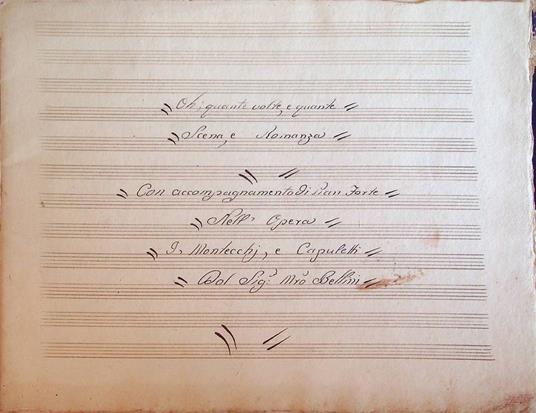 Oh; quante volte, e quante
Scena, e Romanza
Con accompagnamento di Pian Forte
Nell' Opera
I, Montecchj, e Capuletti
Del Sigr. Mro. Bellini